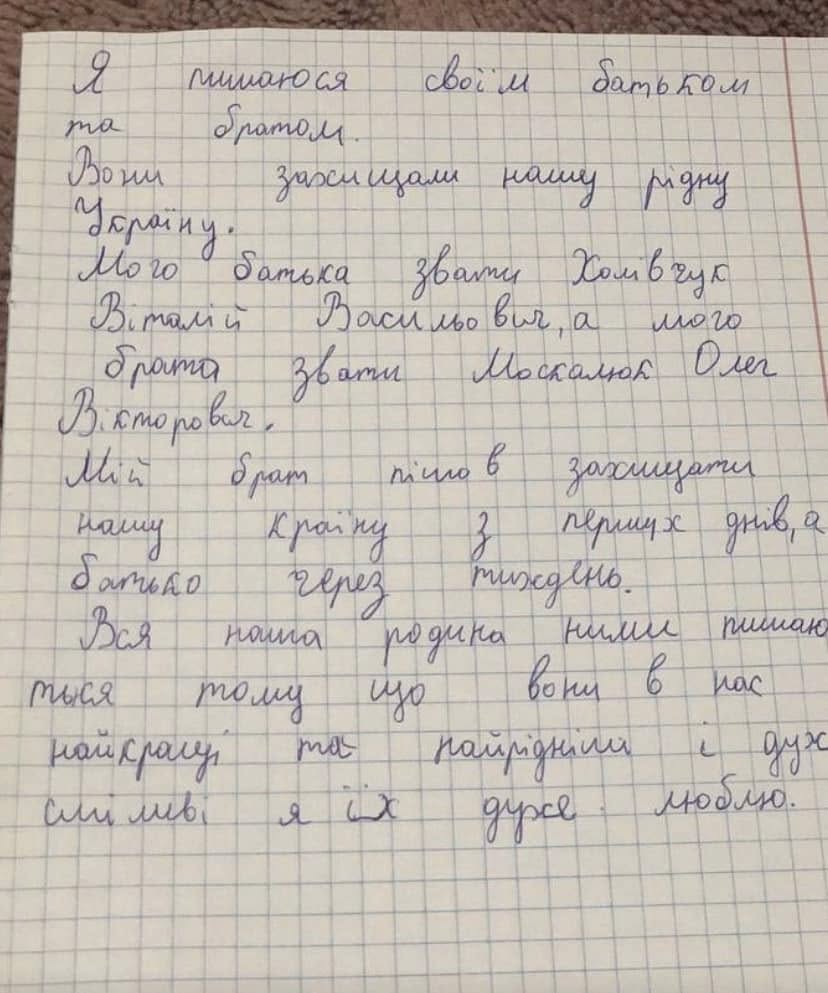 Я пишаюся своїм батьком
та братом.
Вони захищали нашу рідну
Україну.
Мого батька звати Холівчук
Віталій Васильович, а мого
брата звати Москалюк Олег
Вікторович.
Мій брат пішов захищати
нашу країну з перших днів, а
батько через тиждень.
Вся наша родина ними пишаю
ться тому що вони в нас
найкращі та найрідніші і дуж
сміливі я їх дуже люблю.